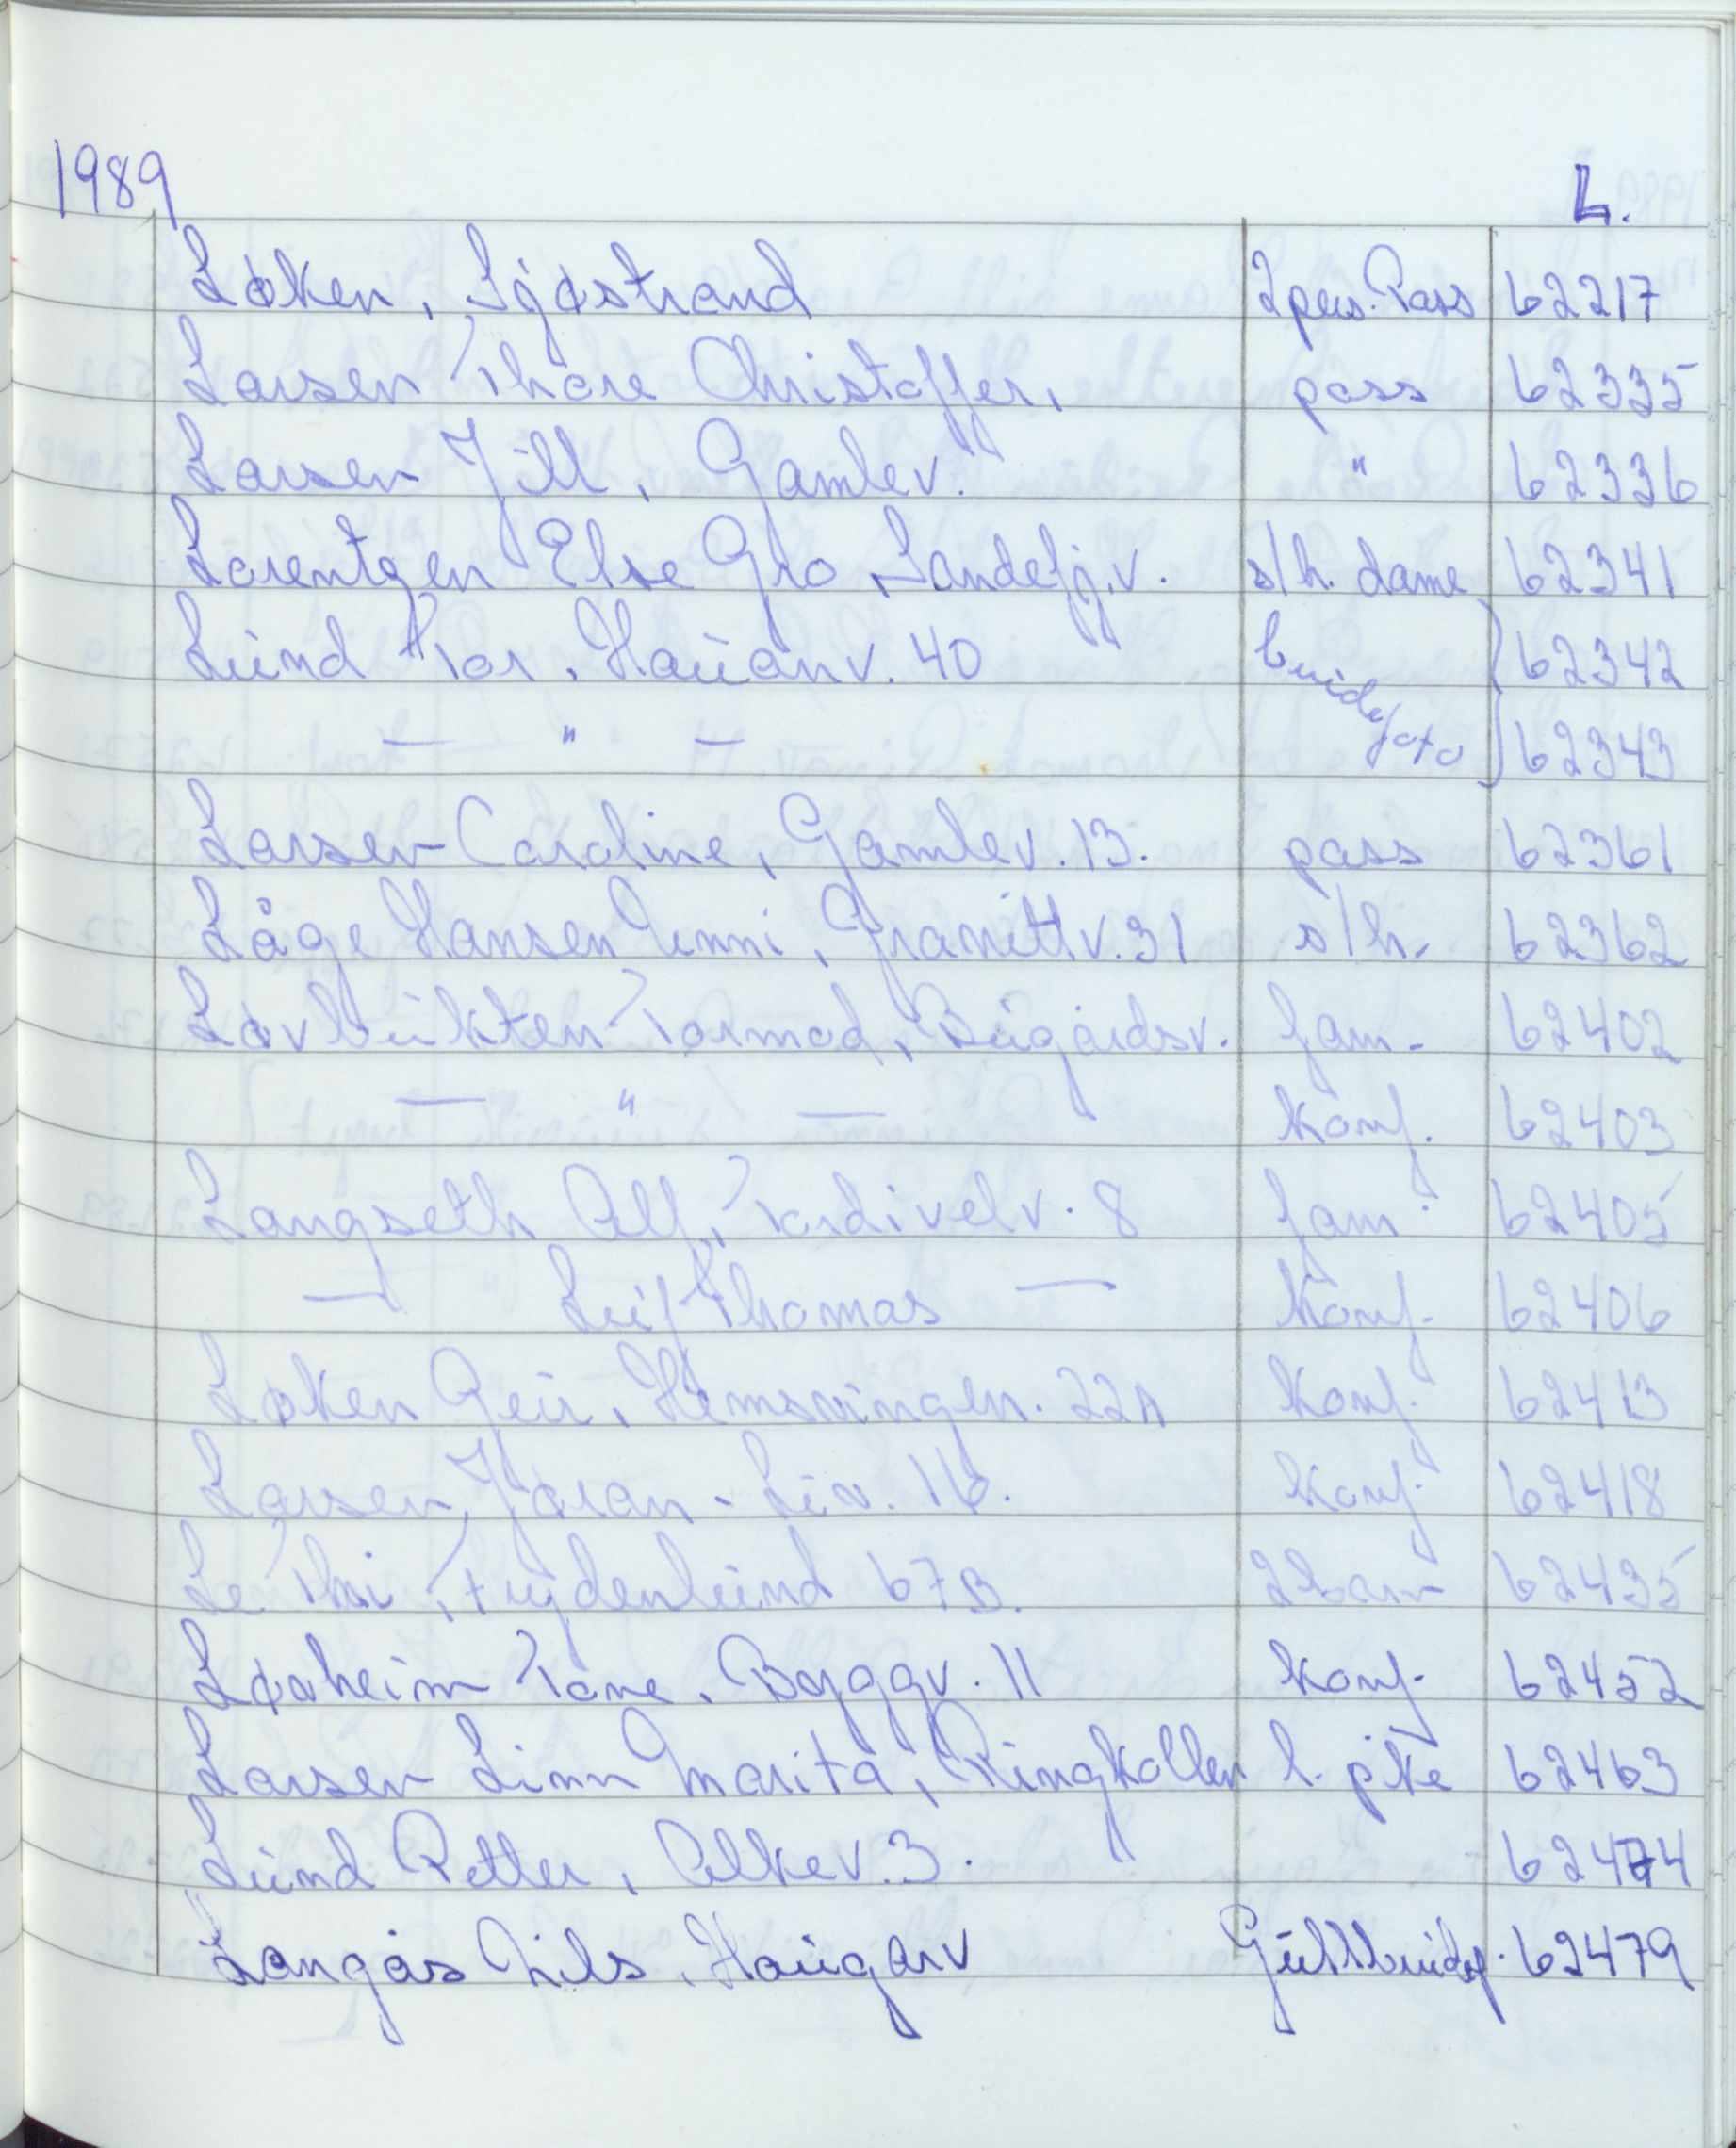 1989 L.
Løken, Sjøstrand 2 pers. Pass 62217
Larsen Thore Christoffer, pass 62335
Larsen Jill, Gamlev. " 62336
Lorentzen Else Gro, Sandefj.v. s/h. dame 62341
Lund Tor, Hauanv. 40 brudefoto 62342
— " — 62343
Larsen Caroline, Gamlev. 13. pass 62361
Låge Hansen Unni, Granittv. 31 s/h. 62362
Løvbukten Tormod, Bugårdsv. fam. 62402
— " — Konf. 62403
Langseth Alf, Tordivelv. 8 fam. 62405
— Leif Thomas — Konf. 62406
Løken Geir, Hemsringen. 22A Konf. 62413
Larsen Jøran - Liv. 16. Konf. 62418
Le Thi, Frydenlund 67B. 2 barn 62435
Løvheim Tone. Byggv. 11 Konf. 62452
Larsen Linn Marita, Ringkollen l. pike 62463
Lund Petter, Alkev. 3. 62474
Langås Nils, Haugarv Gullbrudep. 62479